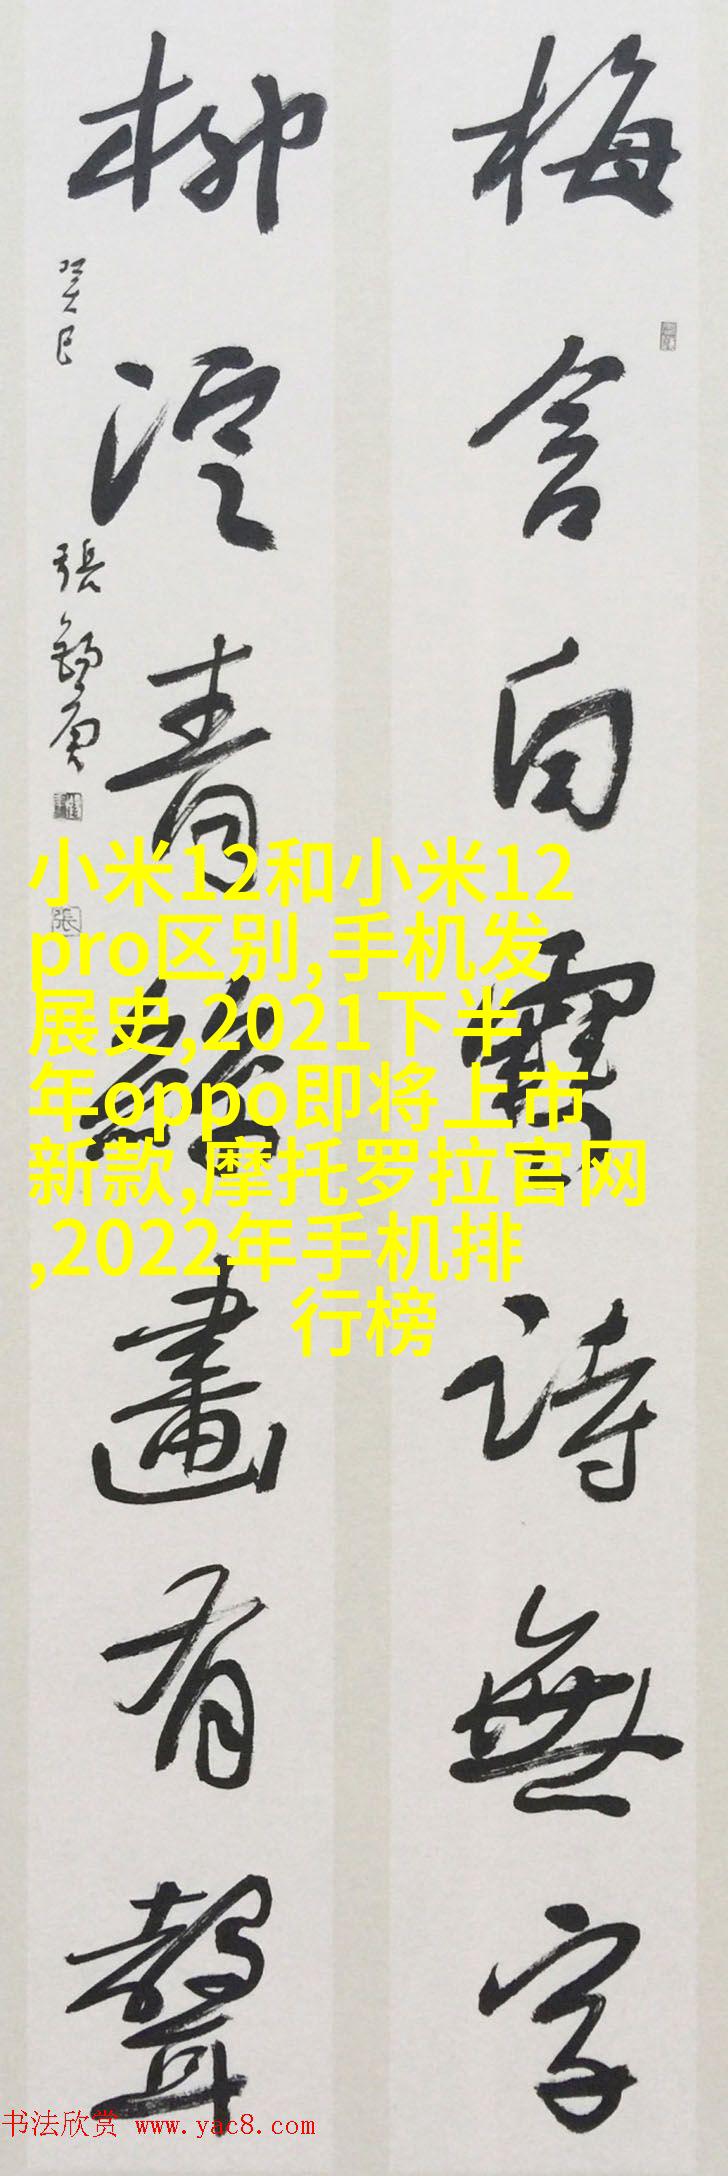 梅含白雪詩無字
柳浥青絲畫有聲
癸巳
張
小米12和小米12
pro区别,手机发
展史,2021下半
年oppo即将上市
新款,摩托罗拉官网
,2022年手机排
行榜
書法欣赏 www.yac8.com